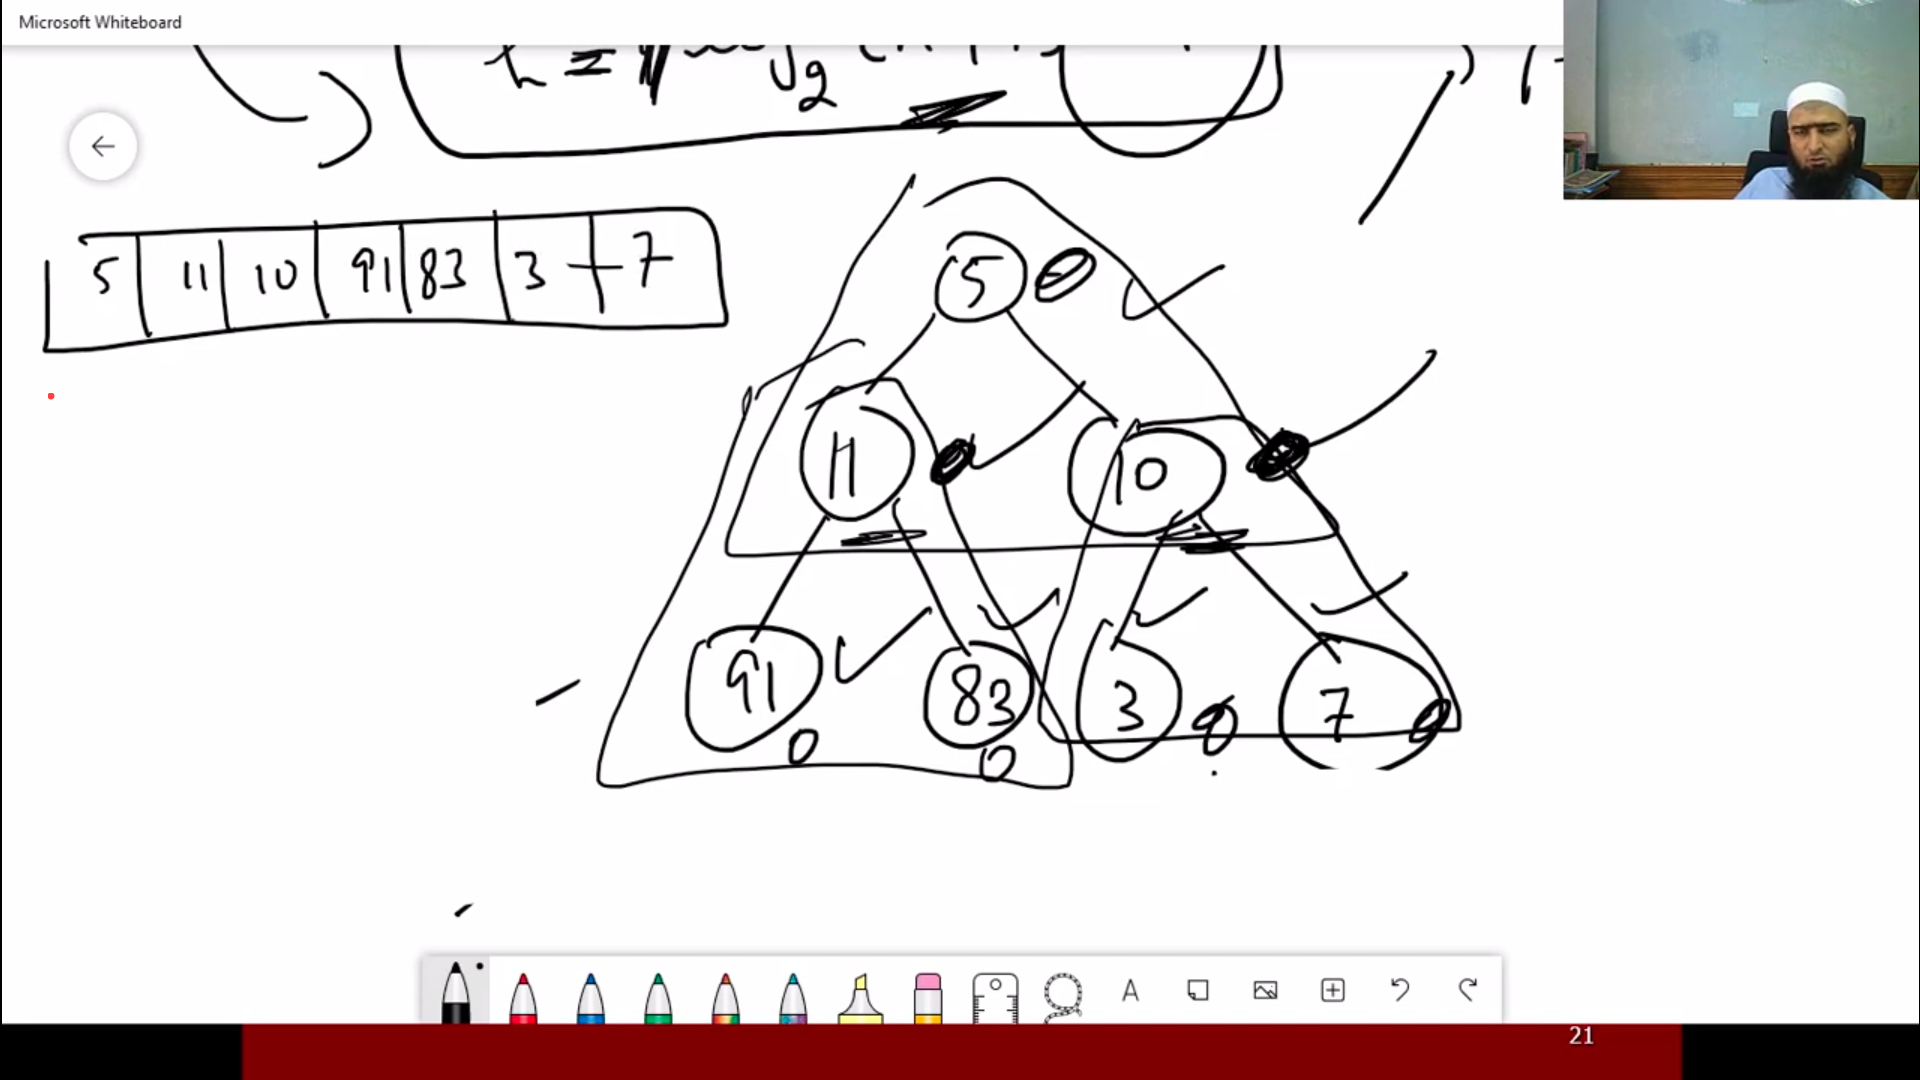 Microsoft Whiteboard
h =
5 11 10 91 83 3 7
5
11 10
91 83 3 7
0 0 0 0
A
21